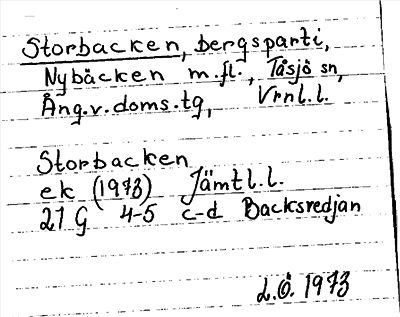 Storbacken, bergsparti,
Nybäcken m.fl., Tåsjö sn,
Ång.v.doms.tg, Vrnl.l.
Storbacken
ek (1973) Jämtl.l.
21 G 4-5 c-d Backsredjan
L.Ö. 1973